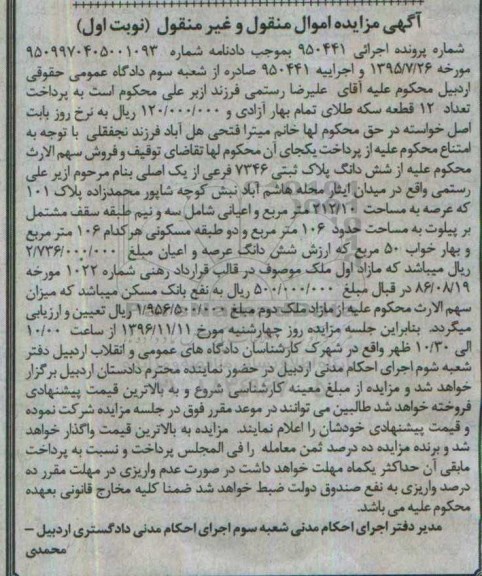 آگهی مزایده اموال منقول و غیر منقول (نوبت اول)
شماره پرونده اجرائی ۹۵۰۴۴۱ بموجب دادنامه شماره ۹۵۰۹۹۷۰۴۰۵۰۰۱۰۹۳
مورخه ۱۳۹۵/۷/۲۶ و اجراییه ۹۵۰۴۴۱ صادره از شعبه سوم دادگاه عمومی حقوقی
اردبیل محکوم علیه آقای علیرضا رستمی فرزند ازبر علی محکوم است به پرداخت
تعداد ۱۲ قطعه سکه طلای تمام بهار آزادی و ۱۲۰/۰۰۰/۰۰۰ ریال به نرخ روز بابت
اصل خواسته در حق محکوم لها خانم میترا فتحی هل آباد فرزند نجفقلی با توجه به
امتناع محکوم علیه از پرداخت یکجای آن محکوم لها تقاضای توقیف و فروش سهم الارث
محکوم علیه از شش دانگ پلاک ثبتی ۷۳۴۶ فرعی از یک اصلی بنام مرحوم ازبر علی
رستمی واقع در میدان ایثار محله هاشم آباد نبش کوچه شاپور محمدزاده پلاک ۱۰۱
که عرصه به مساحت ۲۱۲/۱۰ متر مربع و اعیانی شامل سه و نیم طبقه سقف مشتمل
بر پیلوت به مساحت حدود ۱۰۶ متر مربع و دو طبقه مسکونی هرکدام ۱۰۶ متر مربع
و بهار خواب ۵۰ مربع که ارزش شش دانگ عرصه و اعیان مبلغ ۲/۷۳۶/۰۰۰/۰۰۰
ریال میباشد که مازاد اول ملک موصوف در قالب قرارداد رهنی شماره ۱۰۲۲ مورخه
۸۶/۰۸/۱۹ در قبال مبلغ ۵۰۰/۰۰۰/۰۰۰ ریال به نفع بانک مسکن میباشد که میزان
سهم الارث محکوم علیه از مازاد ملک دوم مبلغ ۱/۹۵۶/۵۰۰/۰۰۰ ریال تعیین و ارزیابی
میگردد. بنابراین جلسه مزایده روز چهارشنبه مورخ ۱۳۹۶/۱۱/۱۱ از ساعت ۱۰/۰۰
الی ۱۰/۳۰ ظهر واقع در شهرک کارشناسان دادگاه های عمومی و انقلاب اردبیل دفتر
شعبه شوم اجرای احکام مدنی اردبیل در حضور نماینده محترم دادستان اردبیل برگزار
خواهد شد و مزایده از مبلغ معینه کارشناسی شروع و به بالاترین قیمت پیشنهادی
فروخته خواهد شد طالبین می توانند در موعد مقرر فوق در جلسه مزایده شرکت نموده
و قیمت پیشنهادی خودشان را اعلام نمایند. مزایده به بالاترین قیمت واگذار خواهد
شد و برنده مزایده ده درصد ثمن معامله را فی المجلس پرداخت و نسبت به پرداخت
مابقی آن حداکثر یکماه مهلت خواهد داشت در صورت عدم واریزی در مهلت مقرر ده
درصد واریزی به نفع صندوق دولت ضبط خواهد شد ضمنا کلیه مخارج قانونی بعهده
محکوم علیه می باشد.
مدیر دفتر اجرای احکام مدنی شعبه سوم اجرای احکام مدنی دادگستری اردبیل –
محمدی